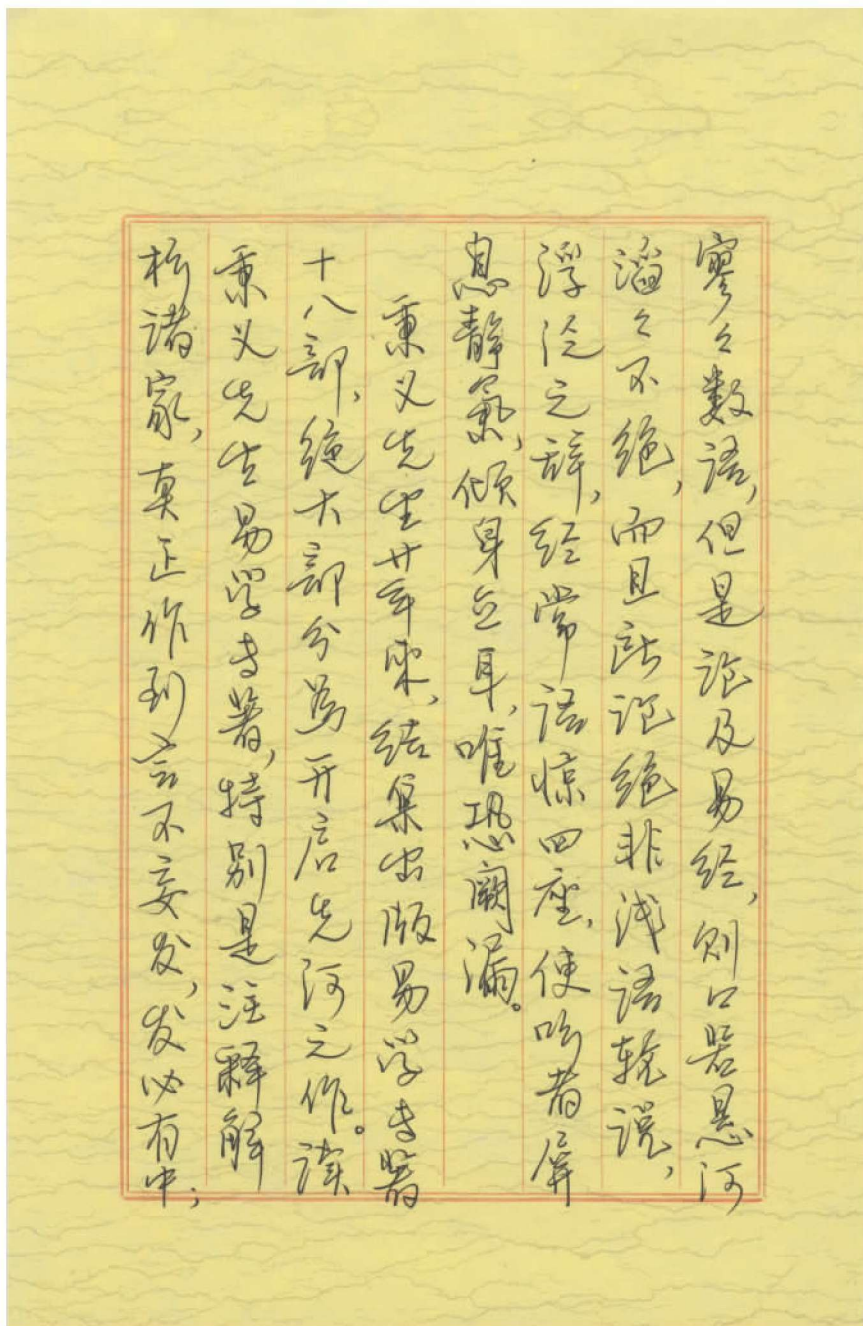 寥々数语，但是论及易经，则口若悬河
滔々不绝，而且所论绝非浅语轻说，
浮泛之辞，经常语惊四座，使听者屏
息静氣，倾身立耳，唯恐阙漏。
秉义先生廿年来，结集出版易学专著
十八部，绝大部分为开启先河之作。读
秉义先生易学专著，特别是注释解
析诸家，真正作到言不妄发，发必有中；